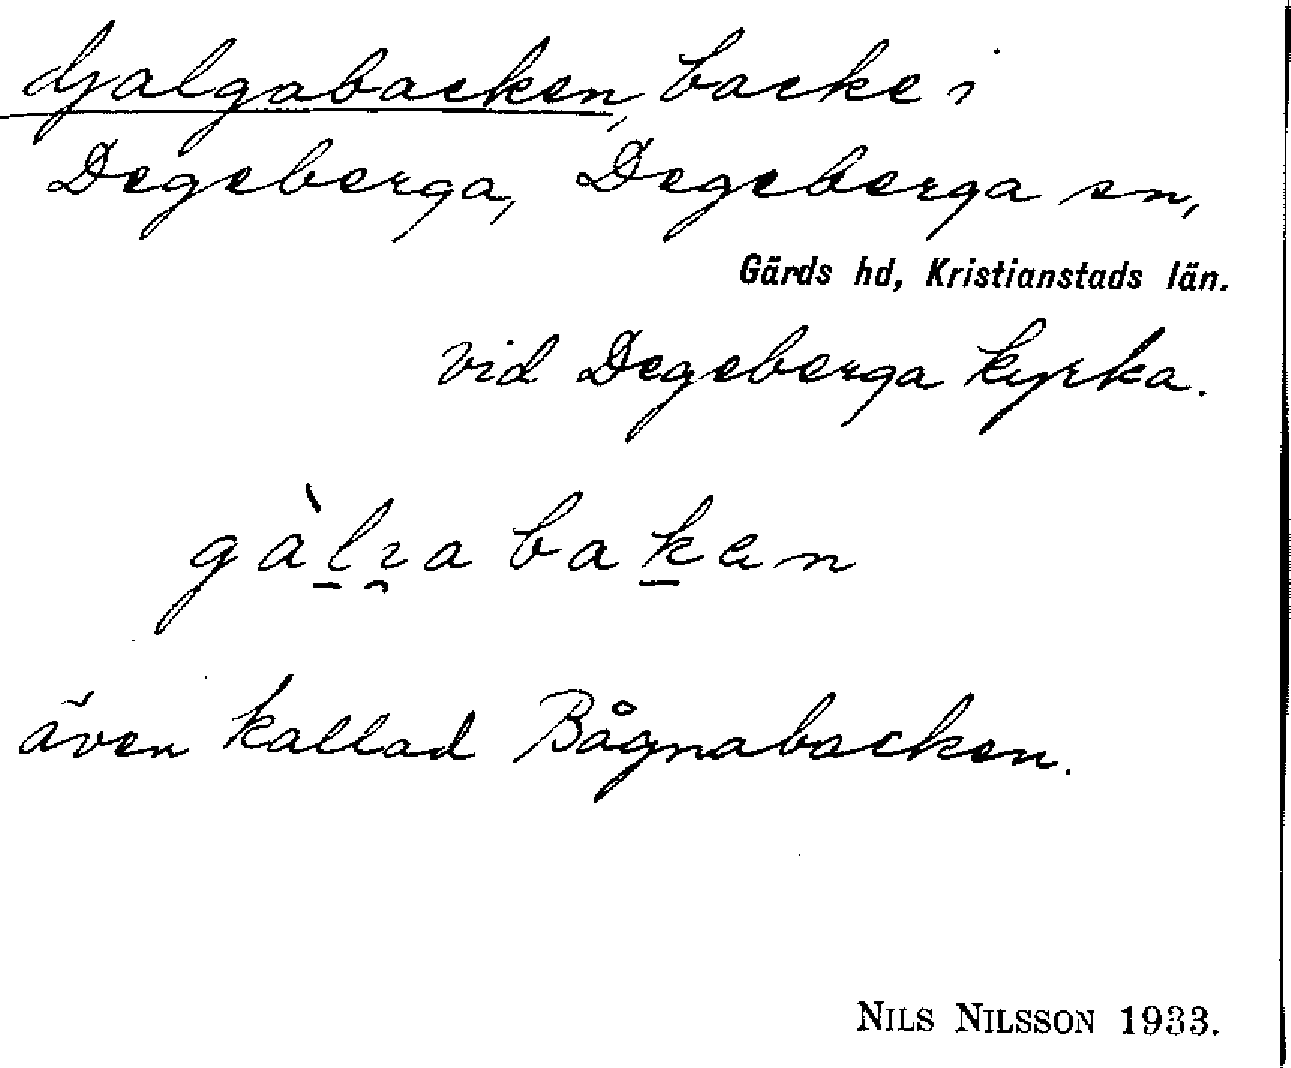 Galgabacken, backe i
Degeberga, Degeberga sn,
Gärds hd, Kristianstads län.
vid Degeberga kyrka.
även kallad Bågnabacken.
NILS NILSSON 1933.